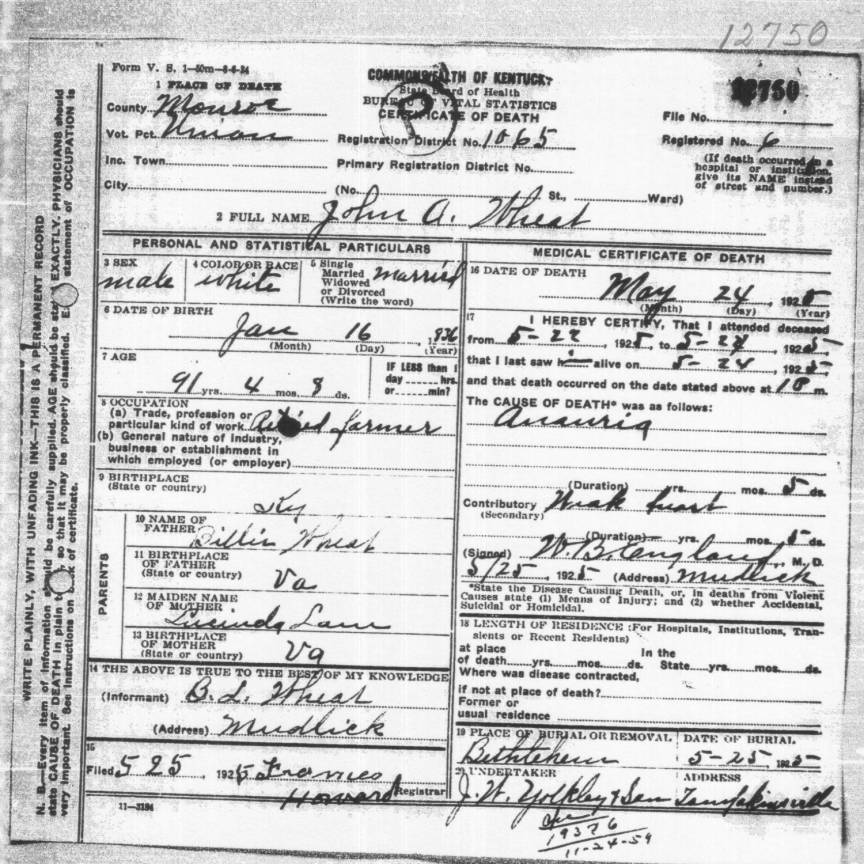 12750
Form V. S. 1—50m—8-6-24
COMMONWEALTH OF KENTUCKY
State Board of Health
BUREAU OF VITAL STATISTICS
CERTIFICATE OF DEATH
12750
1 PLACE OF DEATH
County Monroe
Vot. Pct.
Inc. Town
City
Registration District No. 1065
Primary Registration District No.
(No. St., Ward)
File No.
Registered No. 6
(If death occurred in a
hospital or institution,
give its NAME instead
of street and number.)
2 FULL NAME John A. Wheat
PERSONAL AND STATISTICAL PARTICULARS
3 SEX
male
4 COLOR OR RACE
white
5 Single
Married
Widowed
or Divorced
(Write the word)
married
6 DATE OF BIRTH
Jan 16
(Month) (Day) (Year)
7 AGE
91 yrs. 4 mos. 8 ds.
IF LESS than 1
day hrs.
or min?
8 OCCUPATION
(a) Trade, profession or
particular kind of work Retired farmer
(b) General nature of industry,
business or establishment in
which employed (or employer)
9 BIRTHPLACE
(State or country)
Ky
PARENTS
10 NAME OF
FATHER
Wheat
11 BIRTHPLACE
OF FATHER
(State or country)
Va
12 MAIDEN NAME
OF MOTHER
Lucinda
13 BIRTHPLACE
OF MOTHER
(State or country)
Va
14 THE ABOVE IS TRUE TO THE BEST OF MY KNOWLEDGE
(Informant) B. L. Wheat
(Address) Mudlick
15
Filed 5 25, 1925 Frances
Howard Registrar
11—3184
MEDICAL CERTIFICATE OF DEATH
16 DATE OF DEATH
May 24, 1925
(Month) (Day) (Year)
17 I HEREBY CERTIFY, That I attended deceased
from 5-22, 1925, to 5-24, 1925
that I last saw him alive on 5-24, 1925
and that death occurred on the date stated above at m.
The CAUSE OF DEATH* was as follows:
(Duration) yrs. mos. 5 ds.
Contributory Weak heart
(Secondary)
(Duration) yrs. mos. 5 ds.
(Signed) W. B. England, M. D.
5/25, 1925 (Address) Mudlick
*State the Disease Causing Death, or, in deaths from Violent
Causes state (1) Means of Injury; and (2) whether Accidental,
Suicidal or Homicidal.
18 LENGTH OF RESIDENCE (For Hospitals, Institutions, Tran-
sients or Recent Residents)
at place In the
of death yrs. mos. ds. State yrs. mos. ds.
Where was disease contracted,
if not at place of death?
Former or
usual residence
19 PLACE OF BURIAL OR REMOVAL
Bethlehem
DATE OF BURIAL
5-25, 1925
20 UNDERTAKER
J. W. & Son
ADDRESS
Tompkinsville
19376
11-24-59
N. B.—Every item of information should be carefully supplied. AGE should be stated EXACTLY. PHYSICIANS should
state CAUSE OF DEATH in plain so that it may be properly classified. statement of OCCUPATION is
very important. See instructions on back of certificate.
WRITE PLAINLY, WITH UNFADING INK—THIS IS A PERMANENT RECORD